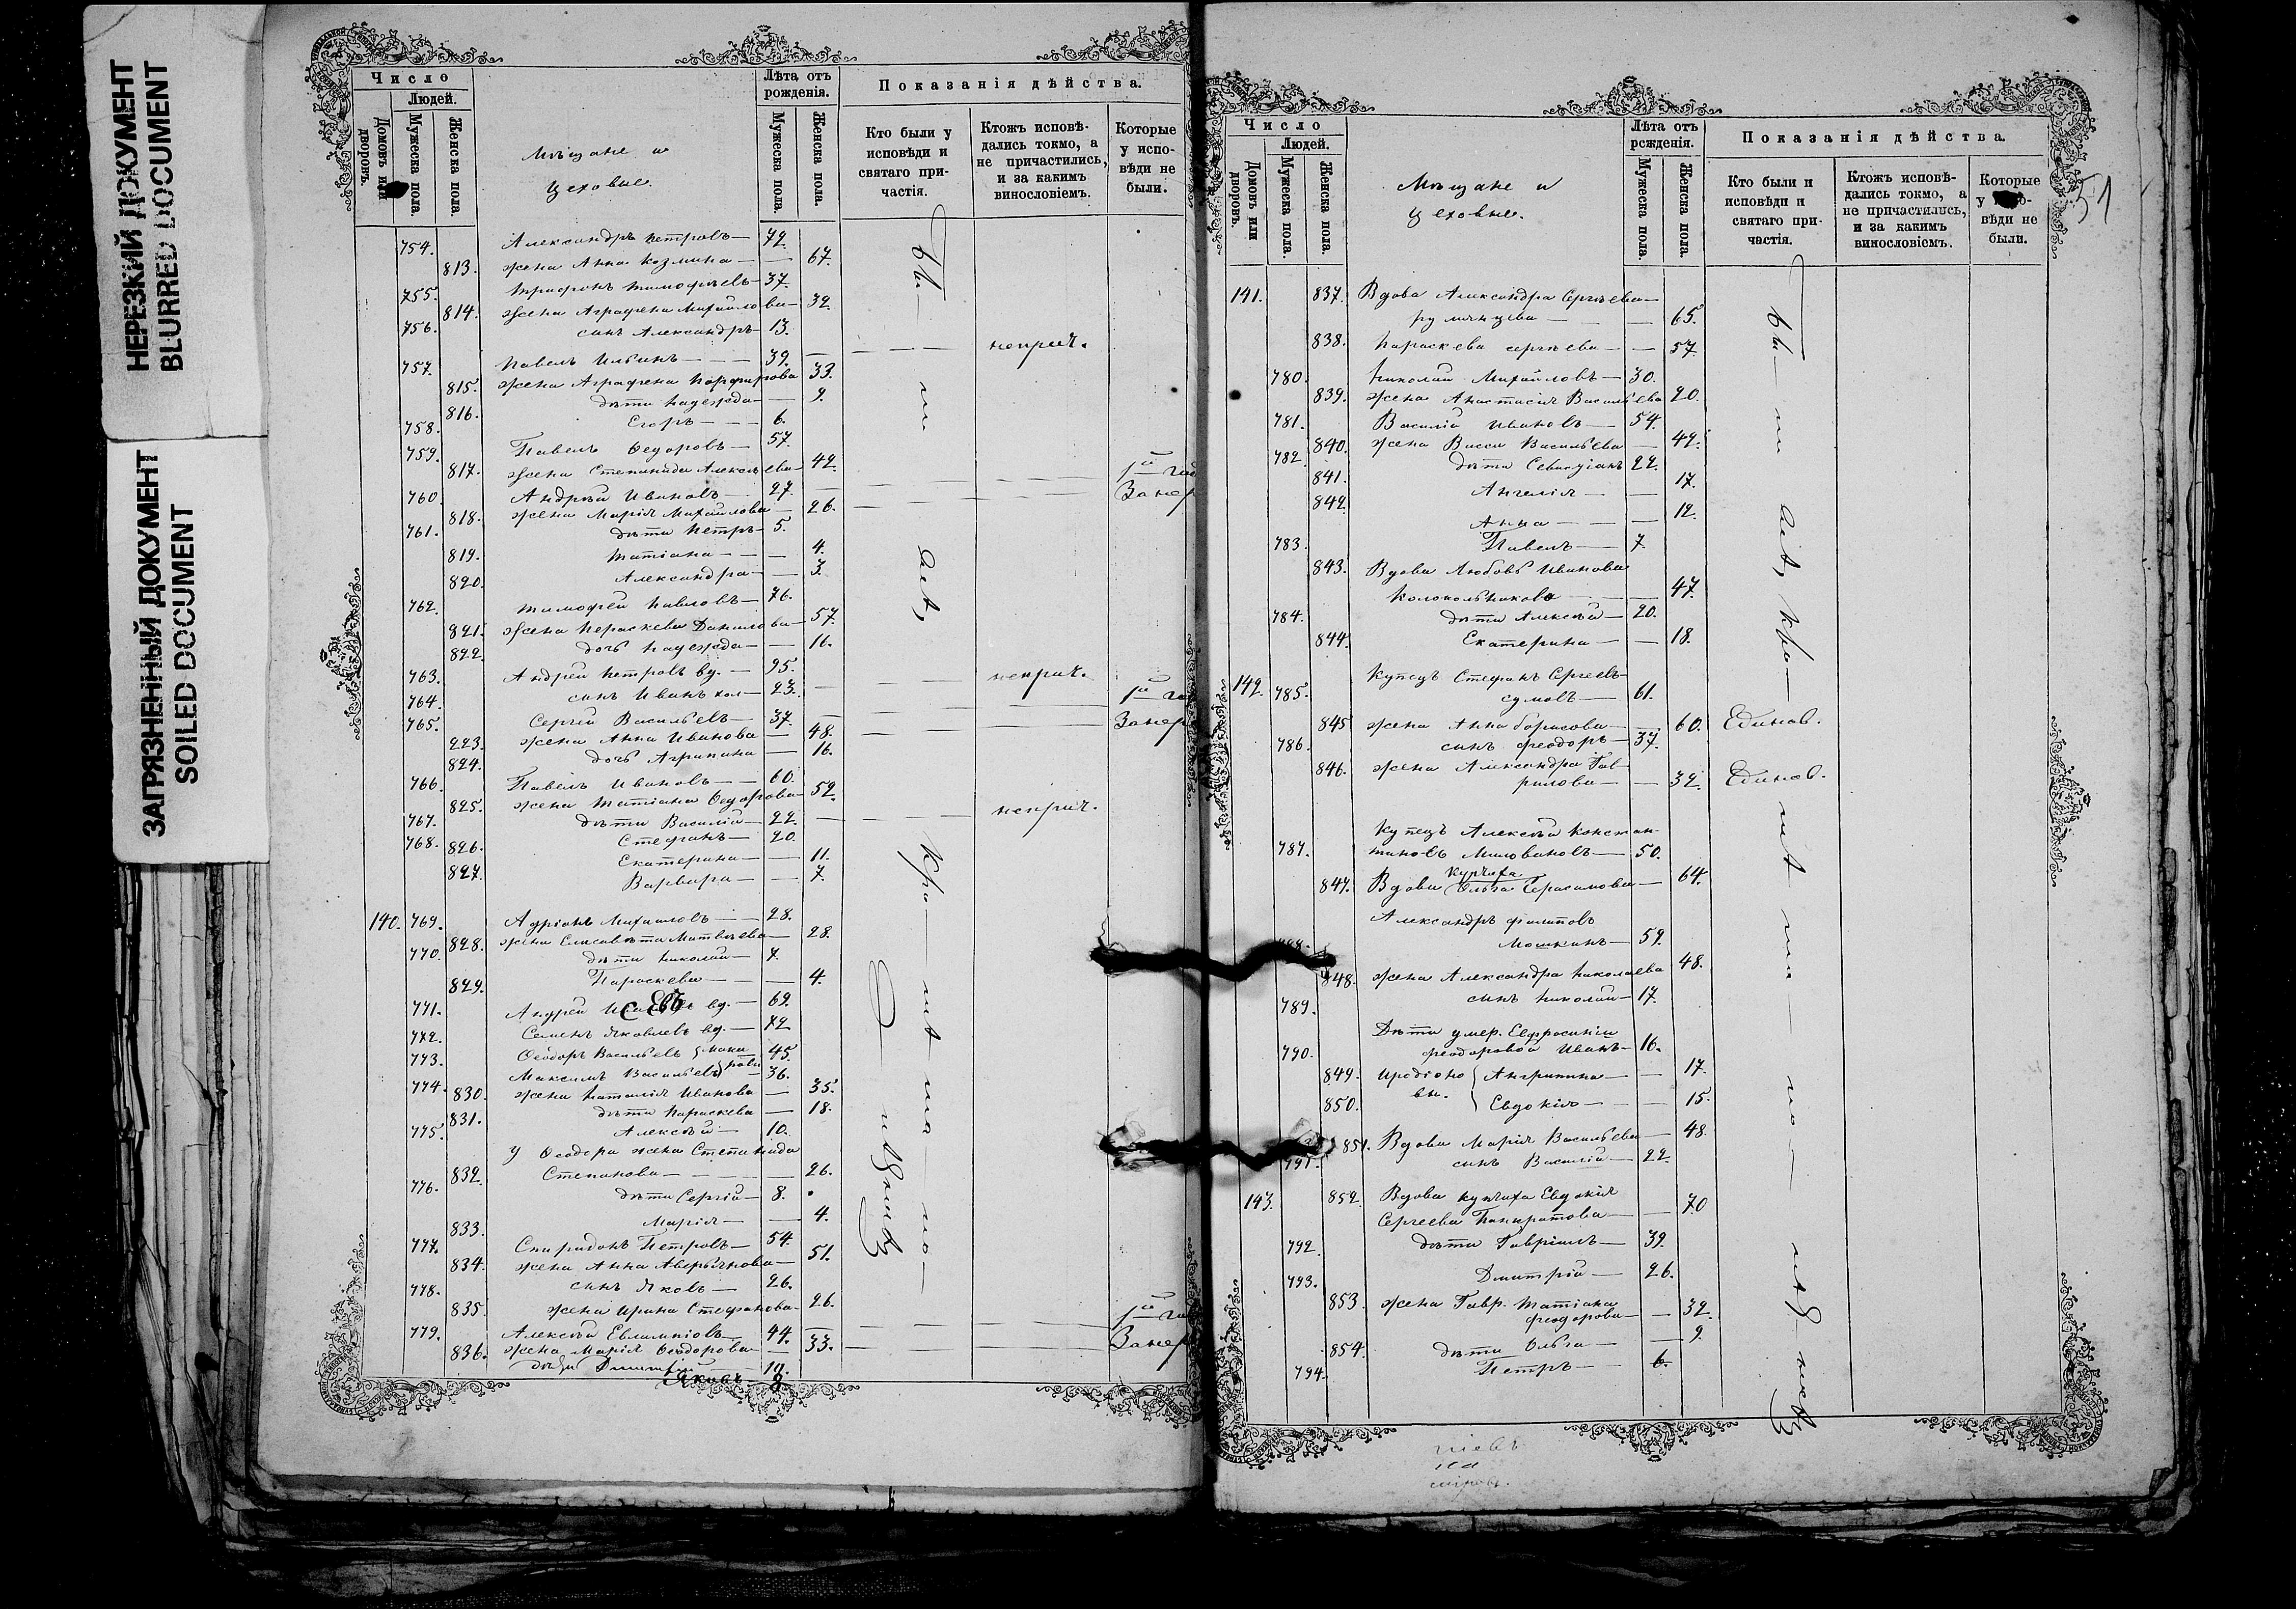 НЕРЕЗКИЙ ДОКУМЕНТ
BLURRED DOCUMENT
ЗАГРЯЗНЕННЫЙ ДОКУМЕНТ
SOILED DOCUMENT
Число
Людей.
Домовъ или дворовъ.
Мужеска пола.
Женска пола.
Мѣщане и
цеховые.
Лѣта отъ рожденія.
Мужеска пола.
Женска пола.
Показанія дѣйства.
Кто были у исповѣди и святаго причастія.
Ктожъ исповѣдались токмо, а не причастились, и за какимъ винословіемъ.
Которые у исповѣди не были.
754. Александръ Петровъ — 72.
813. жена Анна Козмина — 67.
755. Трифонъ Тимофѣевъ — 37.
814. жена Аграфена Михайлова — 32.
756. сынъ Александръ — 13.
757. Павелъ Ильинъ — 39. — неприч.
815. жена Аграфена Порфирова 33.
816. дѣти Надежда — 9.
758. Егоръ — 6.
759. Павелъ Ѳедоровъ — 57.
817. жена Степанида Алексѣева — 42.
760. Андрей Ивановъ — 27.
818. жена Марія Михайлова — 26.
761. дѣти Петръ — 5.
819. Татіана — 4.
820. Александра — 3.
762. Тимофей Павловъ — 76.
821. жена Параскева Данилова — 57.
822. дочь Надежда — 16.
763. Андрей Петровъ вд. — 95. — неприч.
764. сынъ Иванъ хол — 23.
765. Сергій Васильевъ — 37.
223. жена Анна Иванова — 48.
824. дочь Агрипина — 16.
766. Павелъ Ивановъ — 60.
825. жена Татіана Ѳедорова — 52.
767. дѣти Василій — 22. — неприч.
768. Стефанъ — 20.
826. Екатерина — 11.
827. Варвара — 7.
140. 769. Адріанъ Михайловъ — 28.
828. жена Елисавета Матвѣева — 28.
770. дѣти Николай — 7.
829. Параскева — 4.
771. Андрей вд. — 69.
772. Семенъ Яковлевъ вд. — 72
773. Ѳеодоръ Васильевъ 45.
Максимъ Васильевъ 36.
774. 830. жена Наталія Иванова — 35.
831. дѣти Параскева — 18.
775. Алексѣй — 10.
У Ѳеодора жена Степанида
832. Степанова — 26.
776. дѣти Сергій — 8.
833. Марія — 4.
777. Спиридонъ Петровъ — 54.
834. жена Анна Аверьянова — 51.
778. сынъ Яковъ — 26.
835. жена Ирина Стефанова — 26.
779. Алексѣй Евлампіовъ — 44.
836. жена Марія Ѳеодорова — 33.
дѣти Димитрій — 10.
Яковъ 8
51
Число
Людей.
Домовъ или дворовъ.
Мужеска пола.
Женска пола.
Мѣщане и
цеховые.
Лѣта отъ рожденія.
Мужеска пола.
Женска пола.
Показанія дѣйства.
Кто были и исповѣди и святаго причастія.
Ктожъ исповѣдались токмо, а не причастились, и за какимъ винословіемъ.
Которые у исповѣди не были.
141. 837. Вдова Александра Сергѣева —
Румянцева — 65.
838. Параскева Сергѣева — 57
780. Николай Михайловъ — 30.
839. жена Анастасія Васильева 20.
781. Василій Ивановъ — 54.
840. жена Васса Васильева — 49.
782. дѣти Севастіанъ 22.
841. Ангелія — 17.
842. Анна — 12.
783. Павелъ — 7.
843. Вдова Любовь Иванова
Колокольникова — 47.
784. дѣти Алексѣй — 20.
844. Екатерина — 18.
Купецъ Стефанъ Сергѣевъ
142. 785. Сумовъ — 61.
845 жена Анна Борисова — 60. Единов.
786. сынъ Феодоръ — 37.
846. жена Александра Гав-
рилова — 32. Единов.
Купецъ Алексѣй Констан-
787. тиновъ Миловановъ — 50.
купчиха
847. Вдова Ольга Герасимова — 64.
Александръ Филиповъ
788. Мошкинъ — 59.
848. жена Александра Николаева 48.
789. сынъ Николай — 17.
Дѣти умер. Евфросиніи
790. Феодоровой Иванъ — 16.
849. Иродіоно { Агрипина — 17.
850. вы. Евдокія — 15.
851. Вдова Марія Васильева — 48.
791. сынъ Василій — 22.
143. 852. Вдова купчиха Евдокія
Сергѣева Панкратова — 70
792. дѣти Гавріилъ — 39.
793. Дмитрій — 26.
853. жена Гавр. Татіана
Феодорова — 32.
854. дѣти Ольга — 9.
794. Петръ — 6.